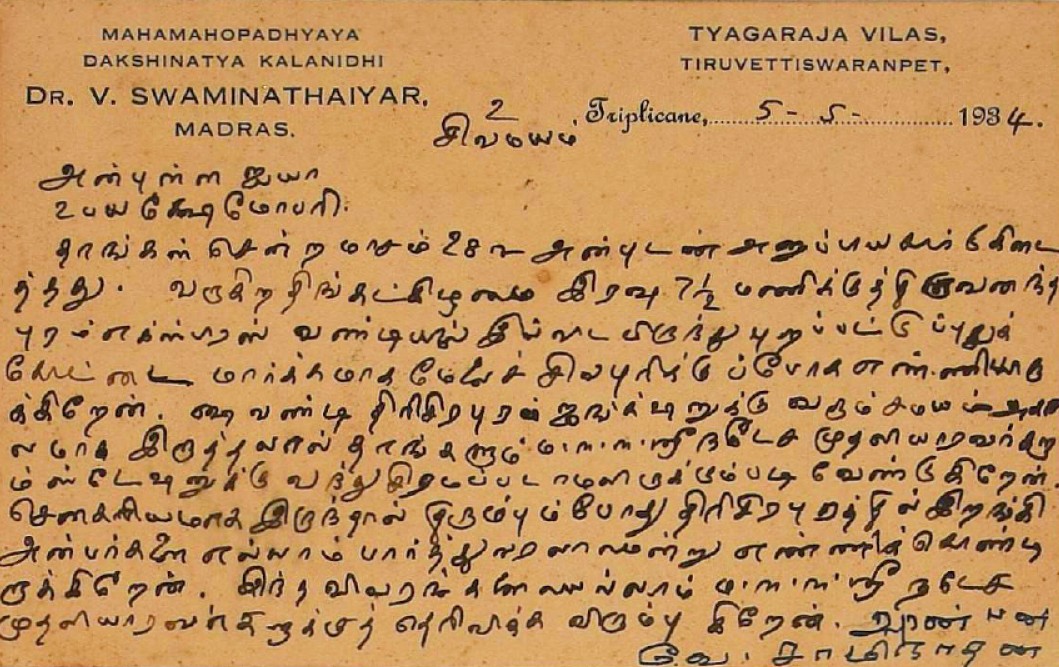 MAHAMAHOPADHYAYA
DAKSHINATYA KALANIDHI
DR. V. SWAMINATHAIYAR,
MADRAS.
TYAGARAJA VILAS,
TIRUVETTISWARANPET,
Triplicane, 5 - 5 - 1934.
உ
சிவமயம்
அன்புள்ள ஐயா
உபயக்ஷேமோபரி.
தாங்கள் சென்ற மாசம் 28 அன்புடன் அனுப்பிய கார்டு கிடை
த்தது. வருகிற திங்கட்கிழமை இரவு 7½ மணிக்குத் திருவனந்த
புரம் எக்ஸ்பிரஸ் வண்டியில் இவ்விடமிருந்து புறப்பட்டுப் புதுக்
கோட்டை மார்க்கமாக மேலைச் சிவபுரிக்குப் போக எண்ணியிரு
க்கிறேன். ஷ வண்டி திரிசிரபுரம் ஜங்க்ஷனுக்கு வரும் சமயம்
லமாக இருத்தலால் தாங்களும் ம-௱-௱-ஸ்ரீ நடேச முதலியாரவர்களு
ம் ஸ்டேஷனுக்கு வந்து சிரமப்படாமலிருக்கும்படி வேண்டுகிறேன்.
சௌகரியமாக இருந்தால் திரும்பும்போது திரிசிரபுரத்தில் இறங்கி
அன்பர்களை எல்லாம் பார்த்து வரலாமென்று எண்ணிக் கொண்டி
ருக்கிறேன். இந்த விவரங்களையெல்லாம் ம-௱-௱-ஸ்ரீ நடேச
முதலியாரவர்களுக்குத் தெரிவிக்க விரும்புகிறேன்.
வே. சாமிநாதன்